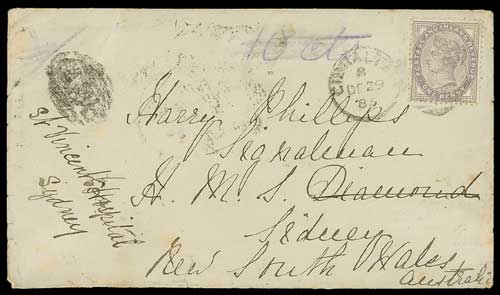 10 cts
GIBRALTAR
B
DE 29
85
POSTAGE AND INLAND REVENUE
ONE PENNY
Harry Phillips
Signalman
H. M. S. Diamond
Sidney
New South Wales
Australia
St Vincent's Hospital
Sydney